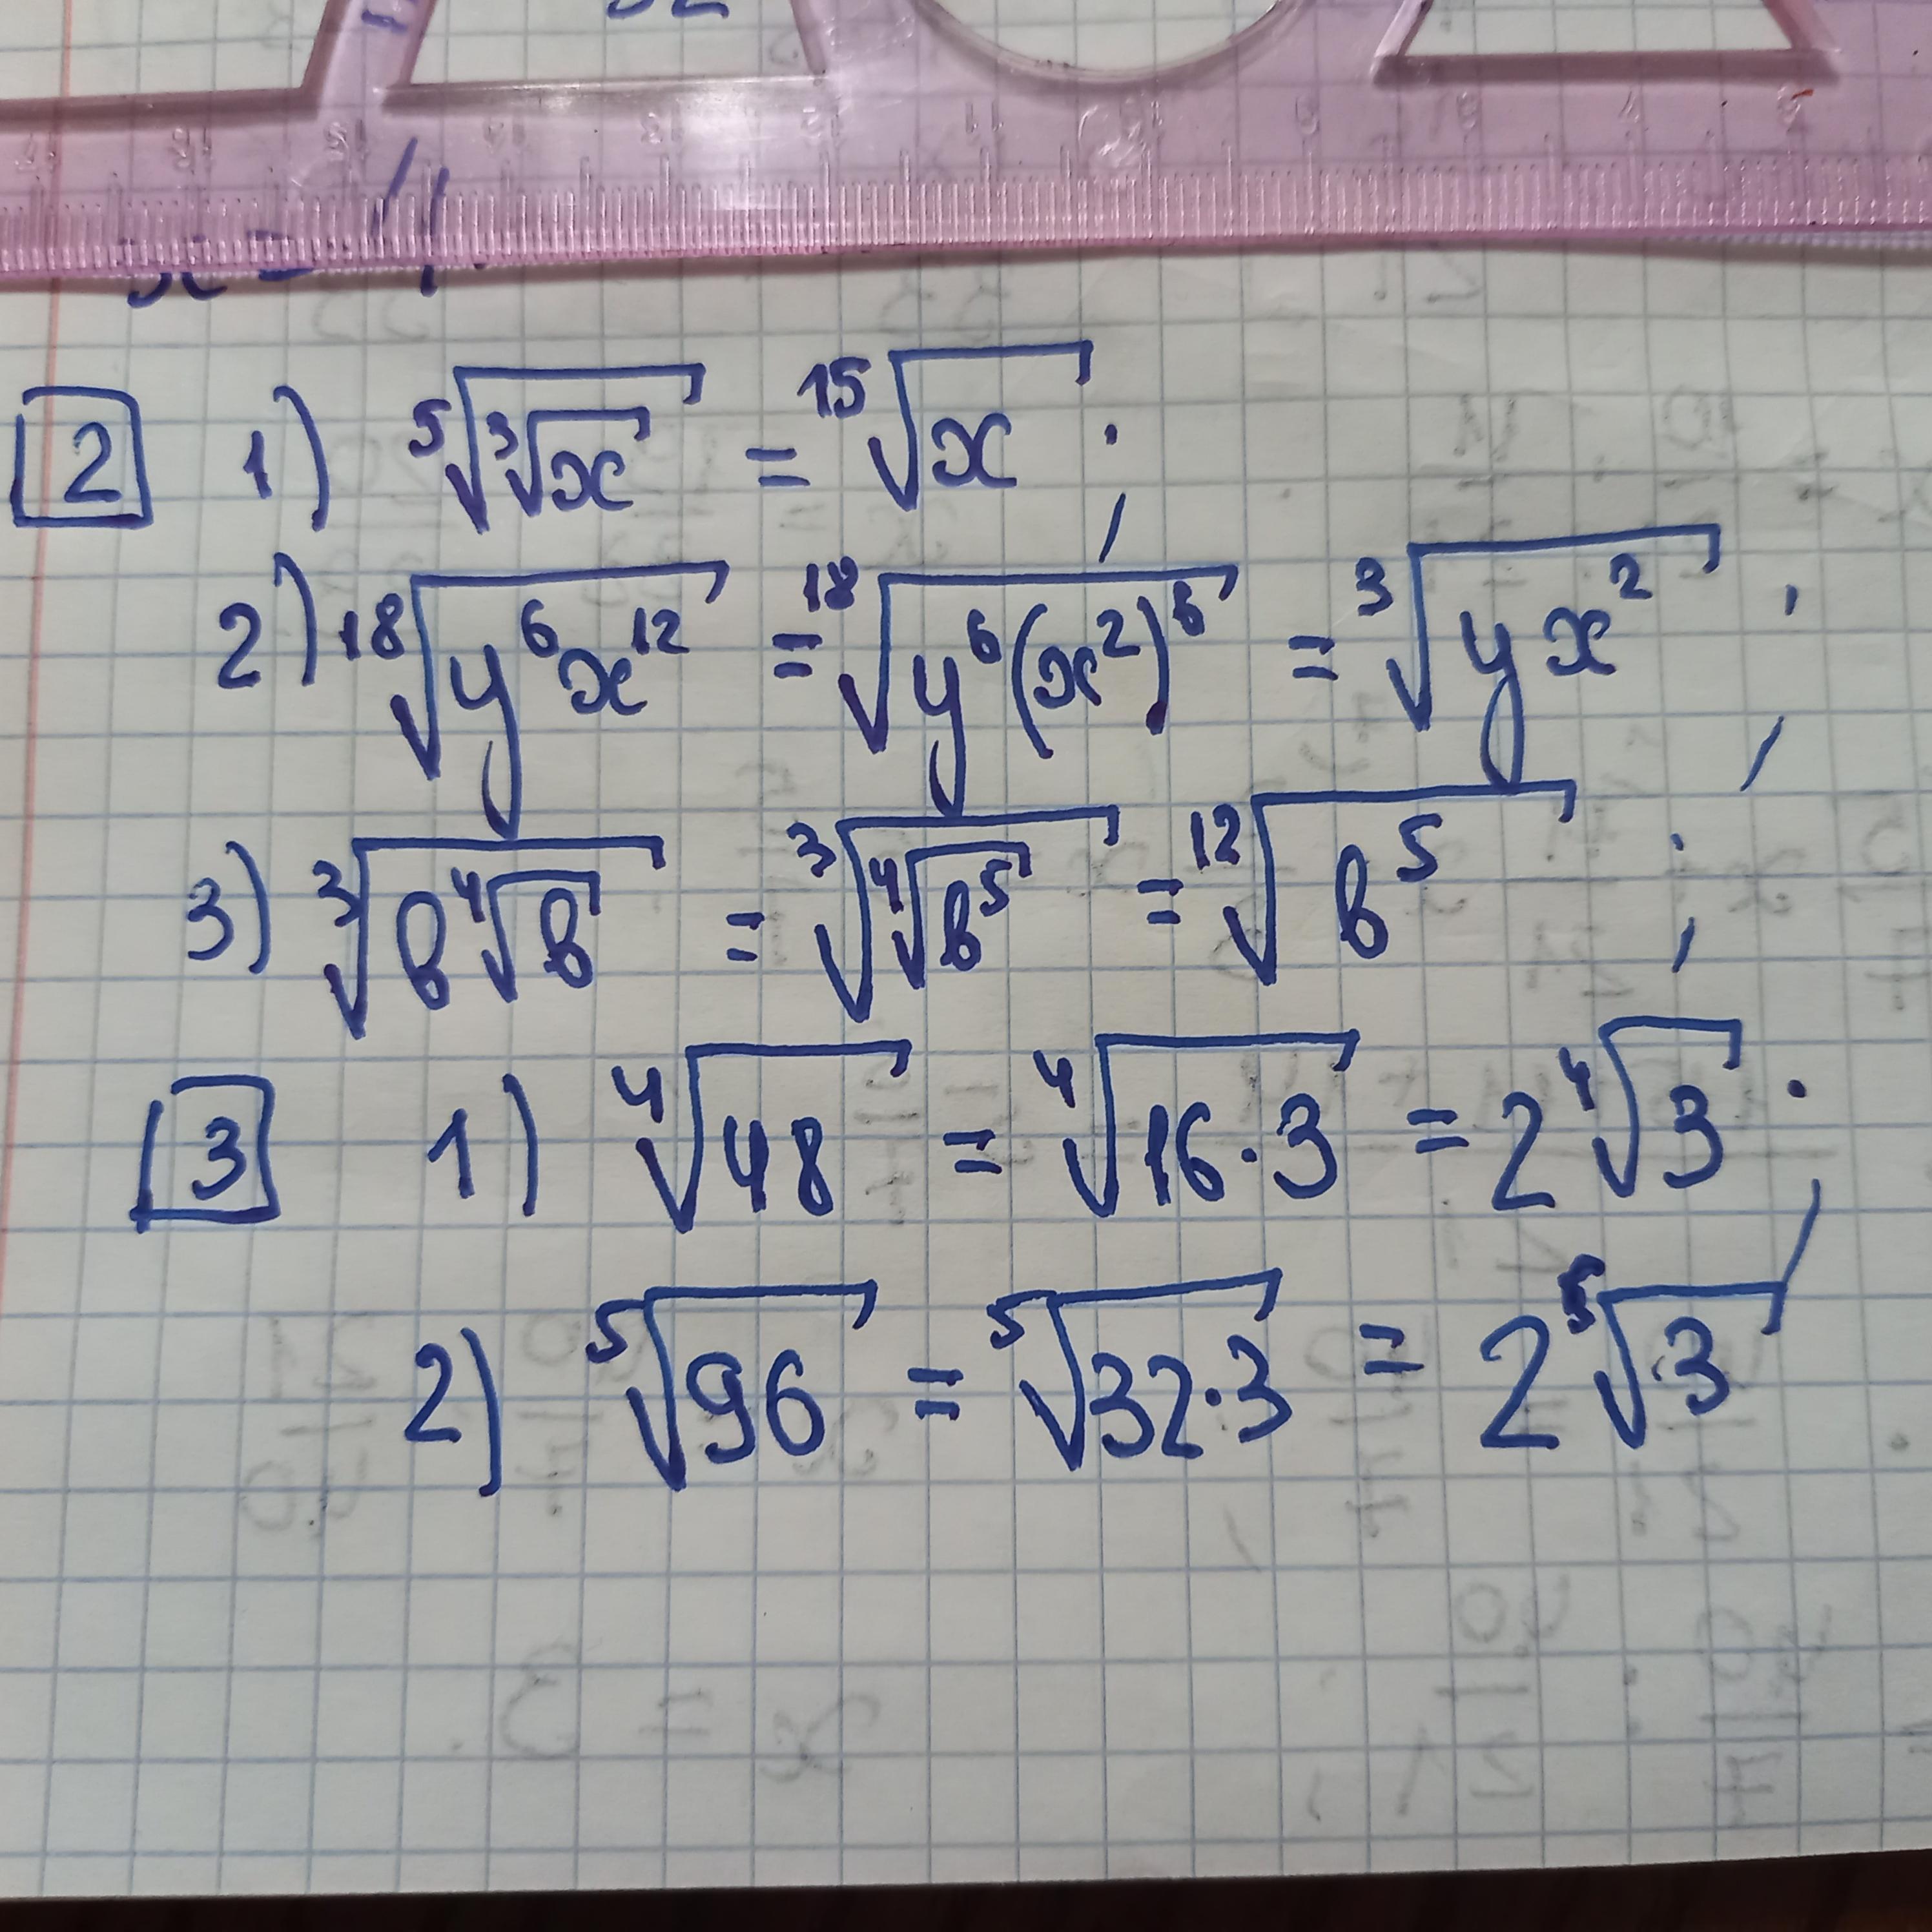 x = 4.
2 1) ⁵√(³√x) = ¹⁵√x ;
2) ¹⁸√(y⁶x¹²) = ¹⁸√(y⁶(x²)⁶) = ³√(yx²) ;
3) ³√(b⁴√b) = ³√(⁴√b⁵) = ¹²√b⁵ ;
3 1) ⁴√48 = ⁴√(16·3) = 2⁴√3 ;
2) ⁵√96 = ⁵√(32·3) = 2⁵√3